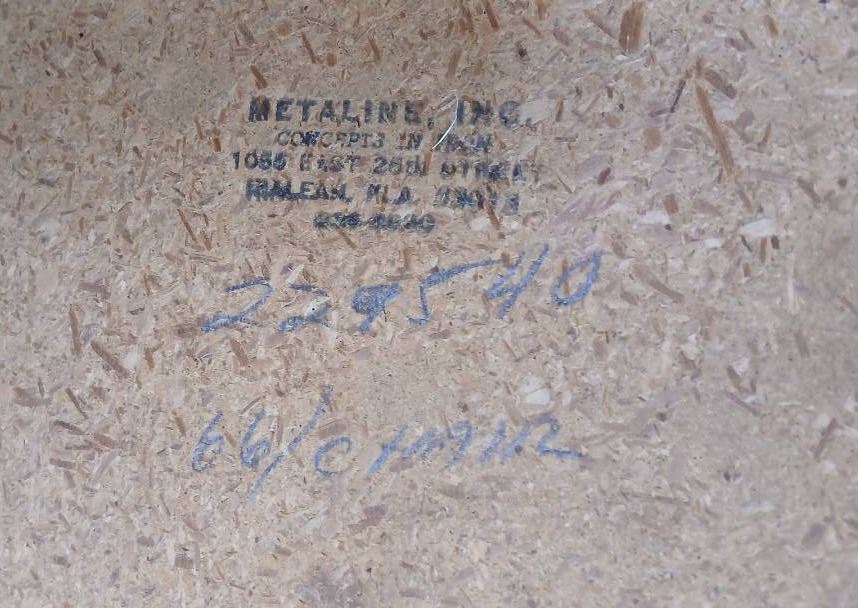 METALINE, INC.
CONCEPTS IN IRON
1085 EAST 26th STREET
HIALEAH, FLA. 33013
229540
66/0